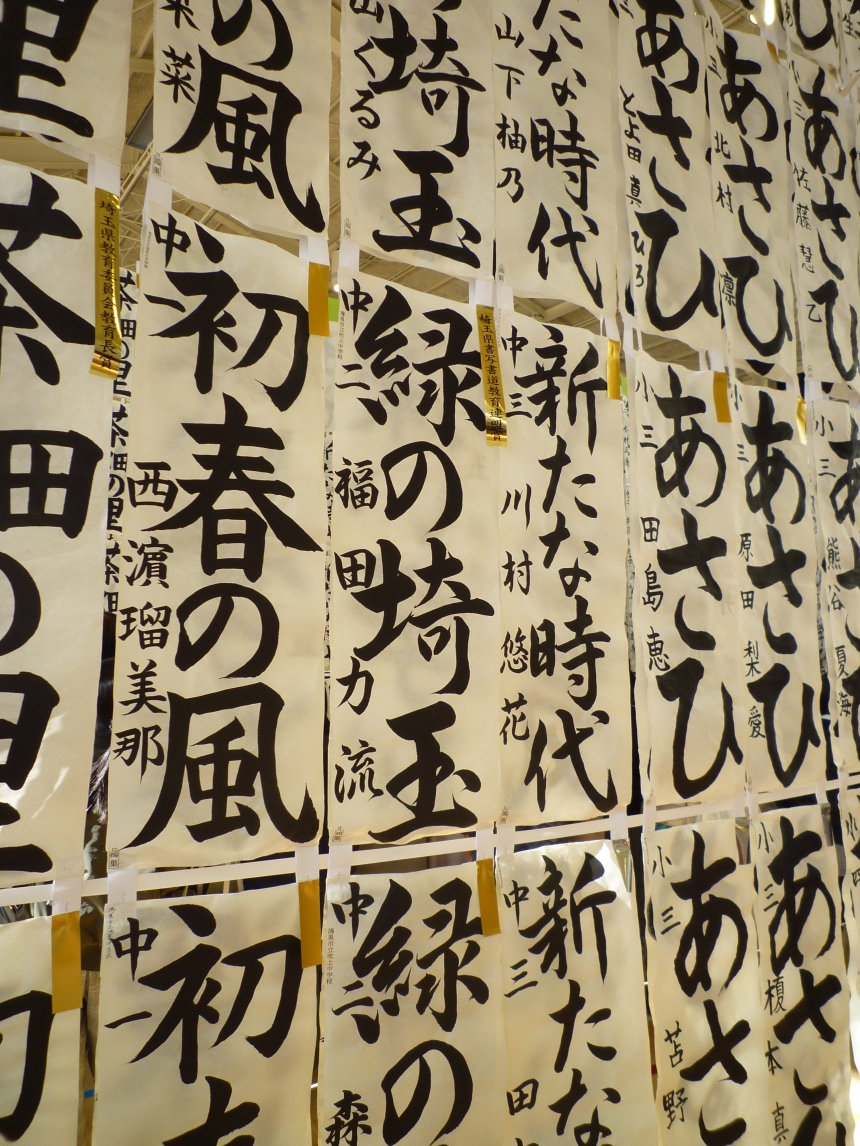 あさひ
小三 佐藤慧乙
あさひ
小三 北村凛
あさひ
とよ田真ひろ
たな時代
山下柚乃
埼玉
山くるみ
の風
菜
里
小三 熊谷夏海
あさひ
小三 原田梨愛
あさひ
小三 田島恵
新たな時代
中三 川村悠花
埼玉県書写書道教育連盟賞
緑の埼玉
中二 福田力流
初春の風
中一 西濵瑠美那
埼玉県教育委員会教育長賞
茶畑の里
茶畑の里茶畑の里茶畑
あさ
小三 榎本真
あさ
小三 苫野
新たな
中三 田
緑の
中二 森
鴻巣市立吹上中学校
初春
中一